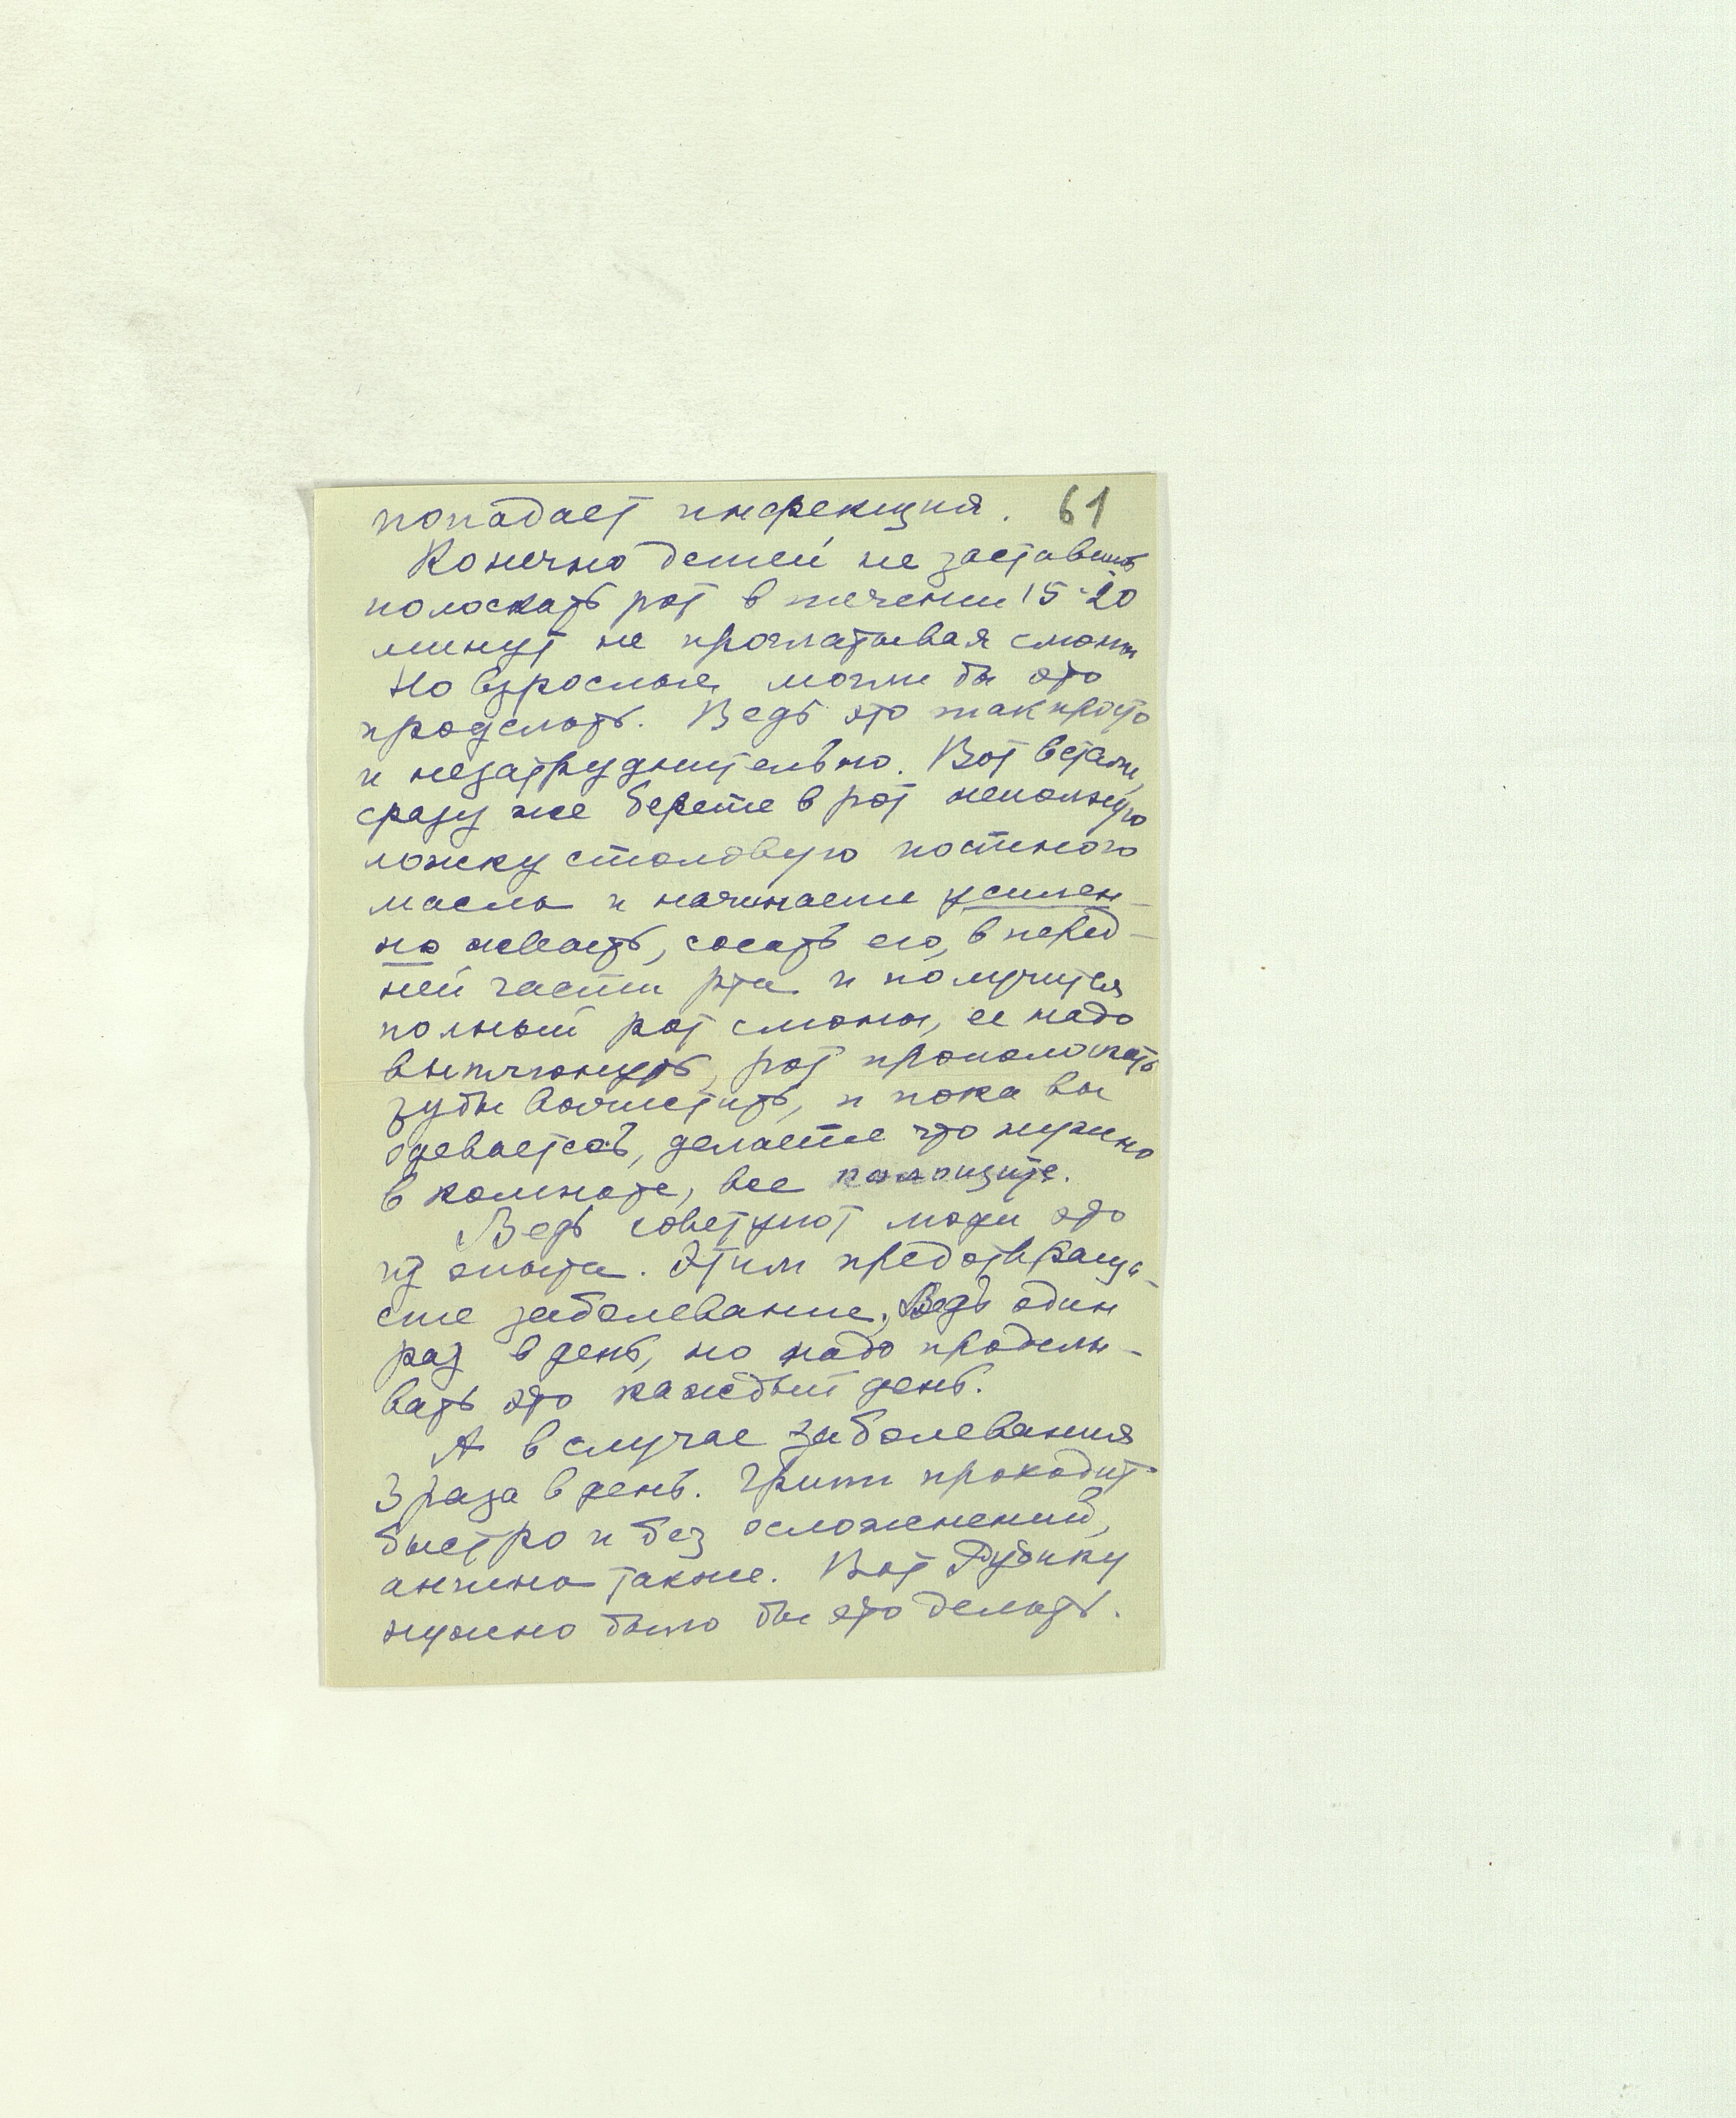 попадает инфекция. 61
Конечно детей не заставишь
полоскать рот в течении 15-20
минут не проглатывая слюны
Но взрослые могли бы это
проделать. Ведь это так просто
и незатруднительно. Вот встали,
сразу же берете в рот неполную
ложку столовую постного
масла и начинаете усилен-
но жевать, сосать его, в перед-
ней части рта и получится
полный рот слюны, ее надо
выплюнуть, рот прополоскать
зубы вычистить, и пока вы
одеваетесь, делаете что нужно
в комнате, все
Ведь советуют люди это
из опыта. Этим предотвраща-
ете заболевание. Ведь один
раз в день, но надо проделы-
вать это каждый день.
А в случае заболевания
3 раза в день. Грипп проходит
быстро и без осложнений,
ангина также. Вот
нужно было бы это делать.